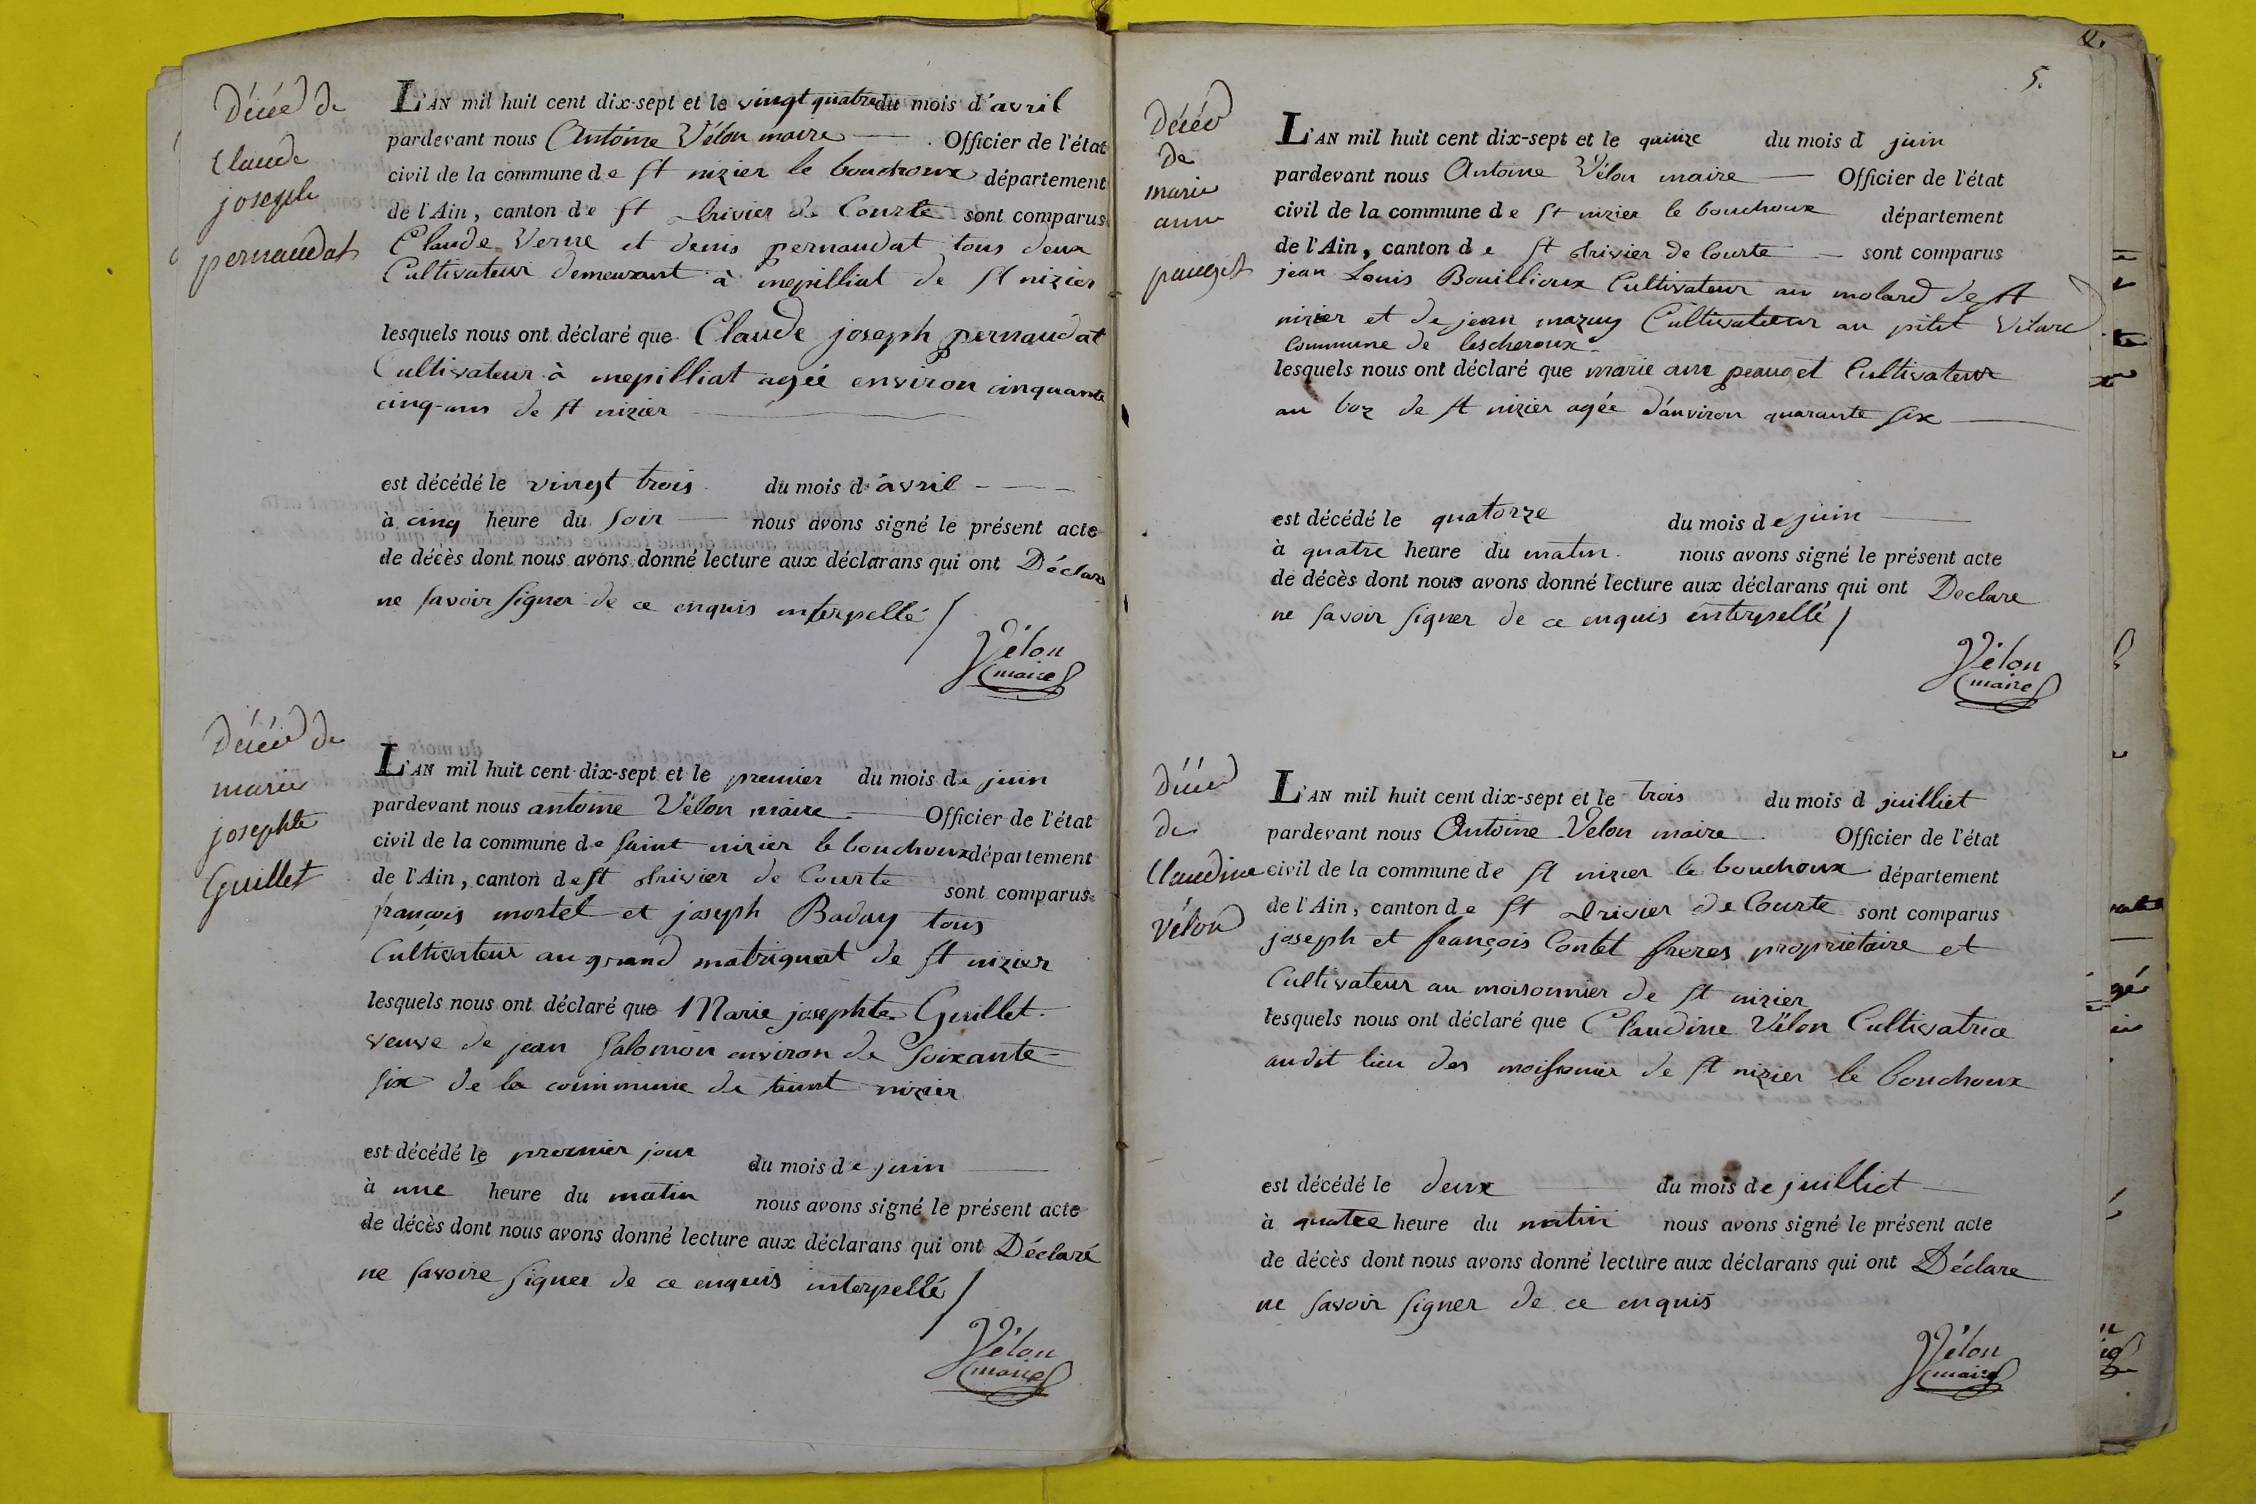 Décéé de
Claude
joseph
pernaudat
L'AN mil huit cent dix-sept et le vingt quatre du mois d'avril
pardevant nous Antoine Vélon maire Officier de l'état
civil de la commune de st nizier le bouchoux département
de l'Ain, canton de st trivier de Courte sont comparus
Claude Verne et denis pernaudat tous deux
Cultivateur demeurant à mepilliat de st nizier
lesquels nous ont déclaré que Claude joseph pernaudat
Cultivateur à mepilliat agée environ cinquante
cinq ans de st nizier
est décédé le vingt trois du mois d'avril
à cinq heure du soir nous avons signé le présent acte
de décès dont nous avons donné lecture aux déclarans qui ont Déclare
ne savoir signer de ce enquis interpellé /
Vélon
maire
Décéé de
marie
josephte
Guillet
L'AN mil huit cent dix-sept et le premier du mois de juin
pardevant nous antoine Vélon maire Officier de l'état
civil de la commune de saint nizier le bouchoux département
de l'Ain, canton de st trivier de Courte sont comparus
françois mortel et joseph Baduy tous
Cultivateur au grand matrignat de st nizier
lesquels nous ont déclaré que Marie josephte Guillet
veuve de jean Salomon environ de soixante
six de la commune de saint nizier
est décédé le premier jour du mois de juin
à une heure du matin nous avons signé le présent acte
de décès dont nous avons donné lecture aux déclarans qui ont Déclaré
ne savoire signer de ce enquis interpellé /
Vélon
maire
5.
Décéé
de
marie
anne
L'AN mil huit cent dix-sept et le quinze du mois d juin
pardevant nous Antoine Vélon maire Officier de l'état
civil de la commune de st nizier le bouchoux département
de l'Ain, canton de st trivier de Courte sont comparus
jean Louis Bouillioux Cultivateur au molard de st
nizier et de jean mazuy Cultivateur au pitit Vilard
Commune de lescheroux
lesquels nous ont déclaré que marie ane peauget Cultivateur
au boz de st nizier agée d'anviron quarante six
est décédé le quatorze du mois de juin
à quatre heure du matin nous avons signé le présent acte
de décès dont nous avons donné lecture aux déclarans qui ont Declare
ne savoir signer de ce enquis interpellé /
Vélon
maire
Décéé
de
Claudine
vélon
L'AN mil huit cent dix-sept et le trois du mois d juilliet
pardevant nous Antoine Velon maire Officier de l'état
civil de la commune de st nizier le bouchoux département
de l'Ain, canton de st trivier de Courte sont comparus
joseph et françois Contet freres proprietaire et
Cultivateur au moisonnier de st nizier
lesquels nous ont déclaré que Claudine Vélon Cultivatrice
audit lieu des moissonier de st nizier le bouchoux
est décédé le deux du mois de juilliet
à quatre heure du matin nous avons signé le présent acte
de décès dont nous avons donné lecture aux déclarans qui ont Déclare
ne savoir signer de ce enquis
Vélon
maire